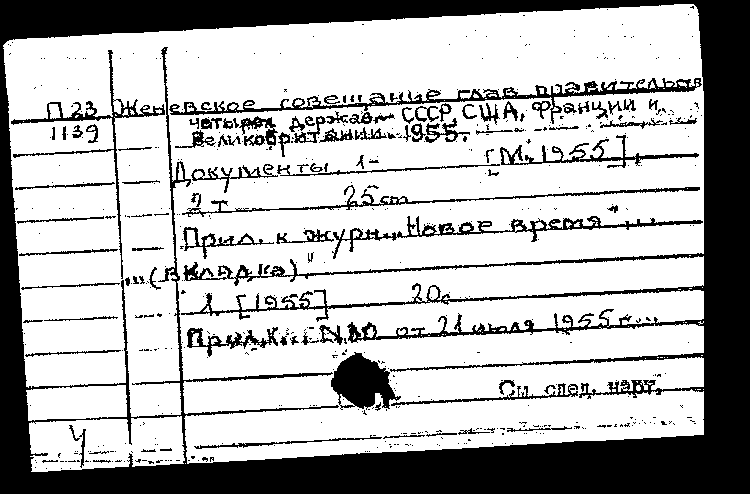 П 23 Женевское совещание глав правительств
1139 четырех держав - СССР, США, Франции и
Великобритании. 1955.
Документы. 1- [М. 1955].
2 т 25 cm
Прил. к журн. „Новое время" ...
...(вкладка)."
1. [1955] 20 с
Прил. к. N 30 от 21 июля 1955 г...
См. след. карт.
Ч